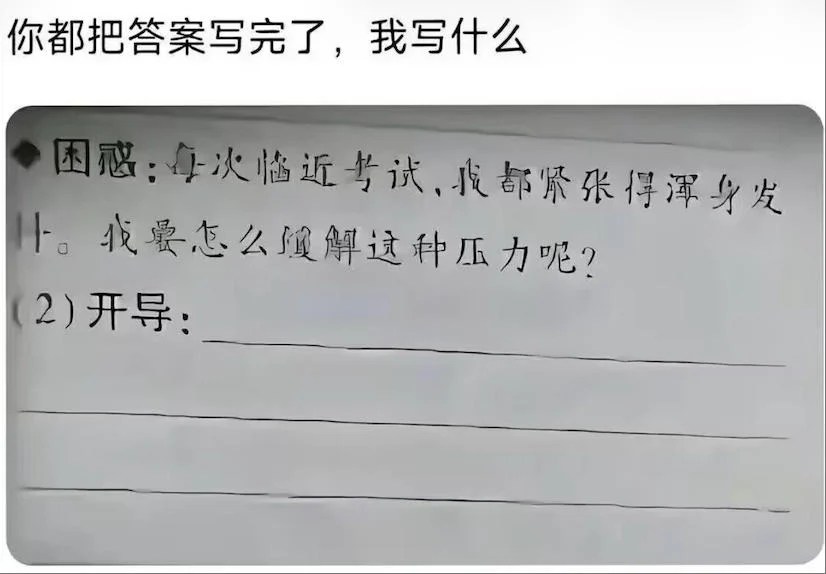 你都把答案写完了，我写什么
◆困惑：每次临近考试、我都紧张得浑身发
抖。我要怎么缓解这种压力呢？
(2)开导：